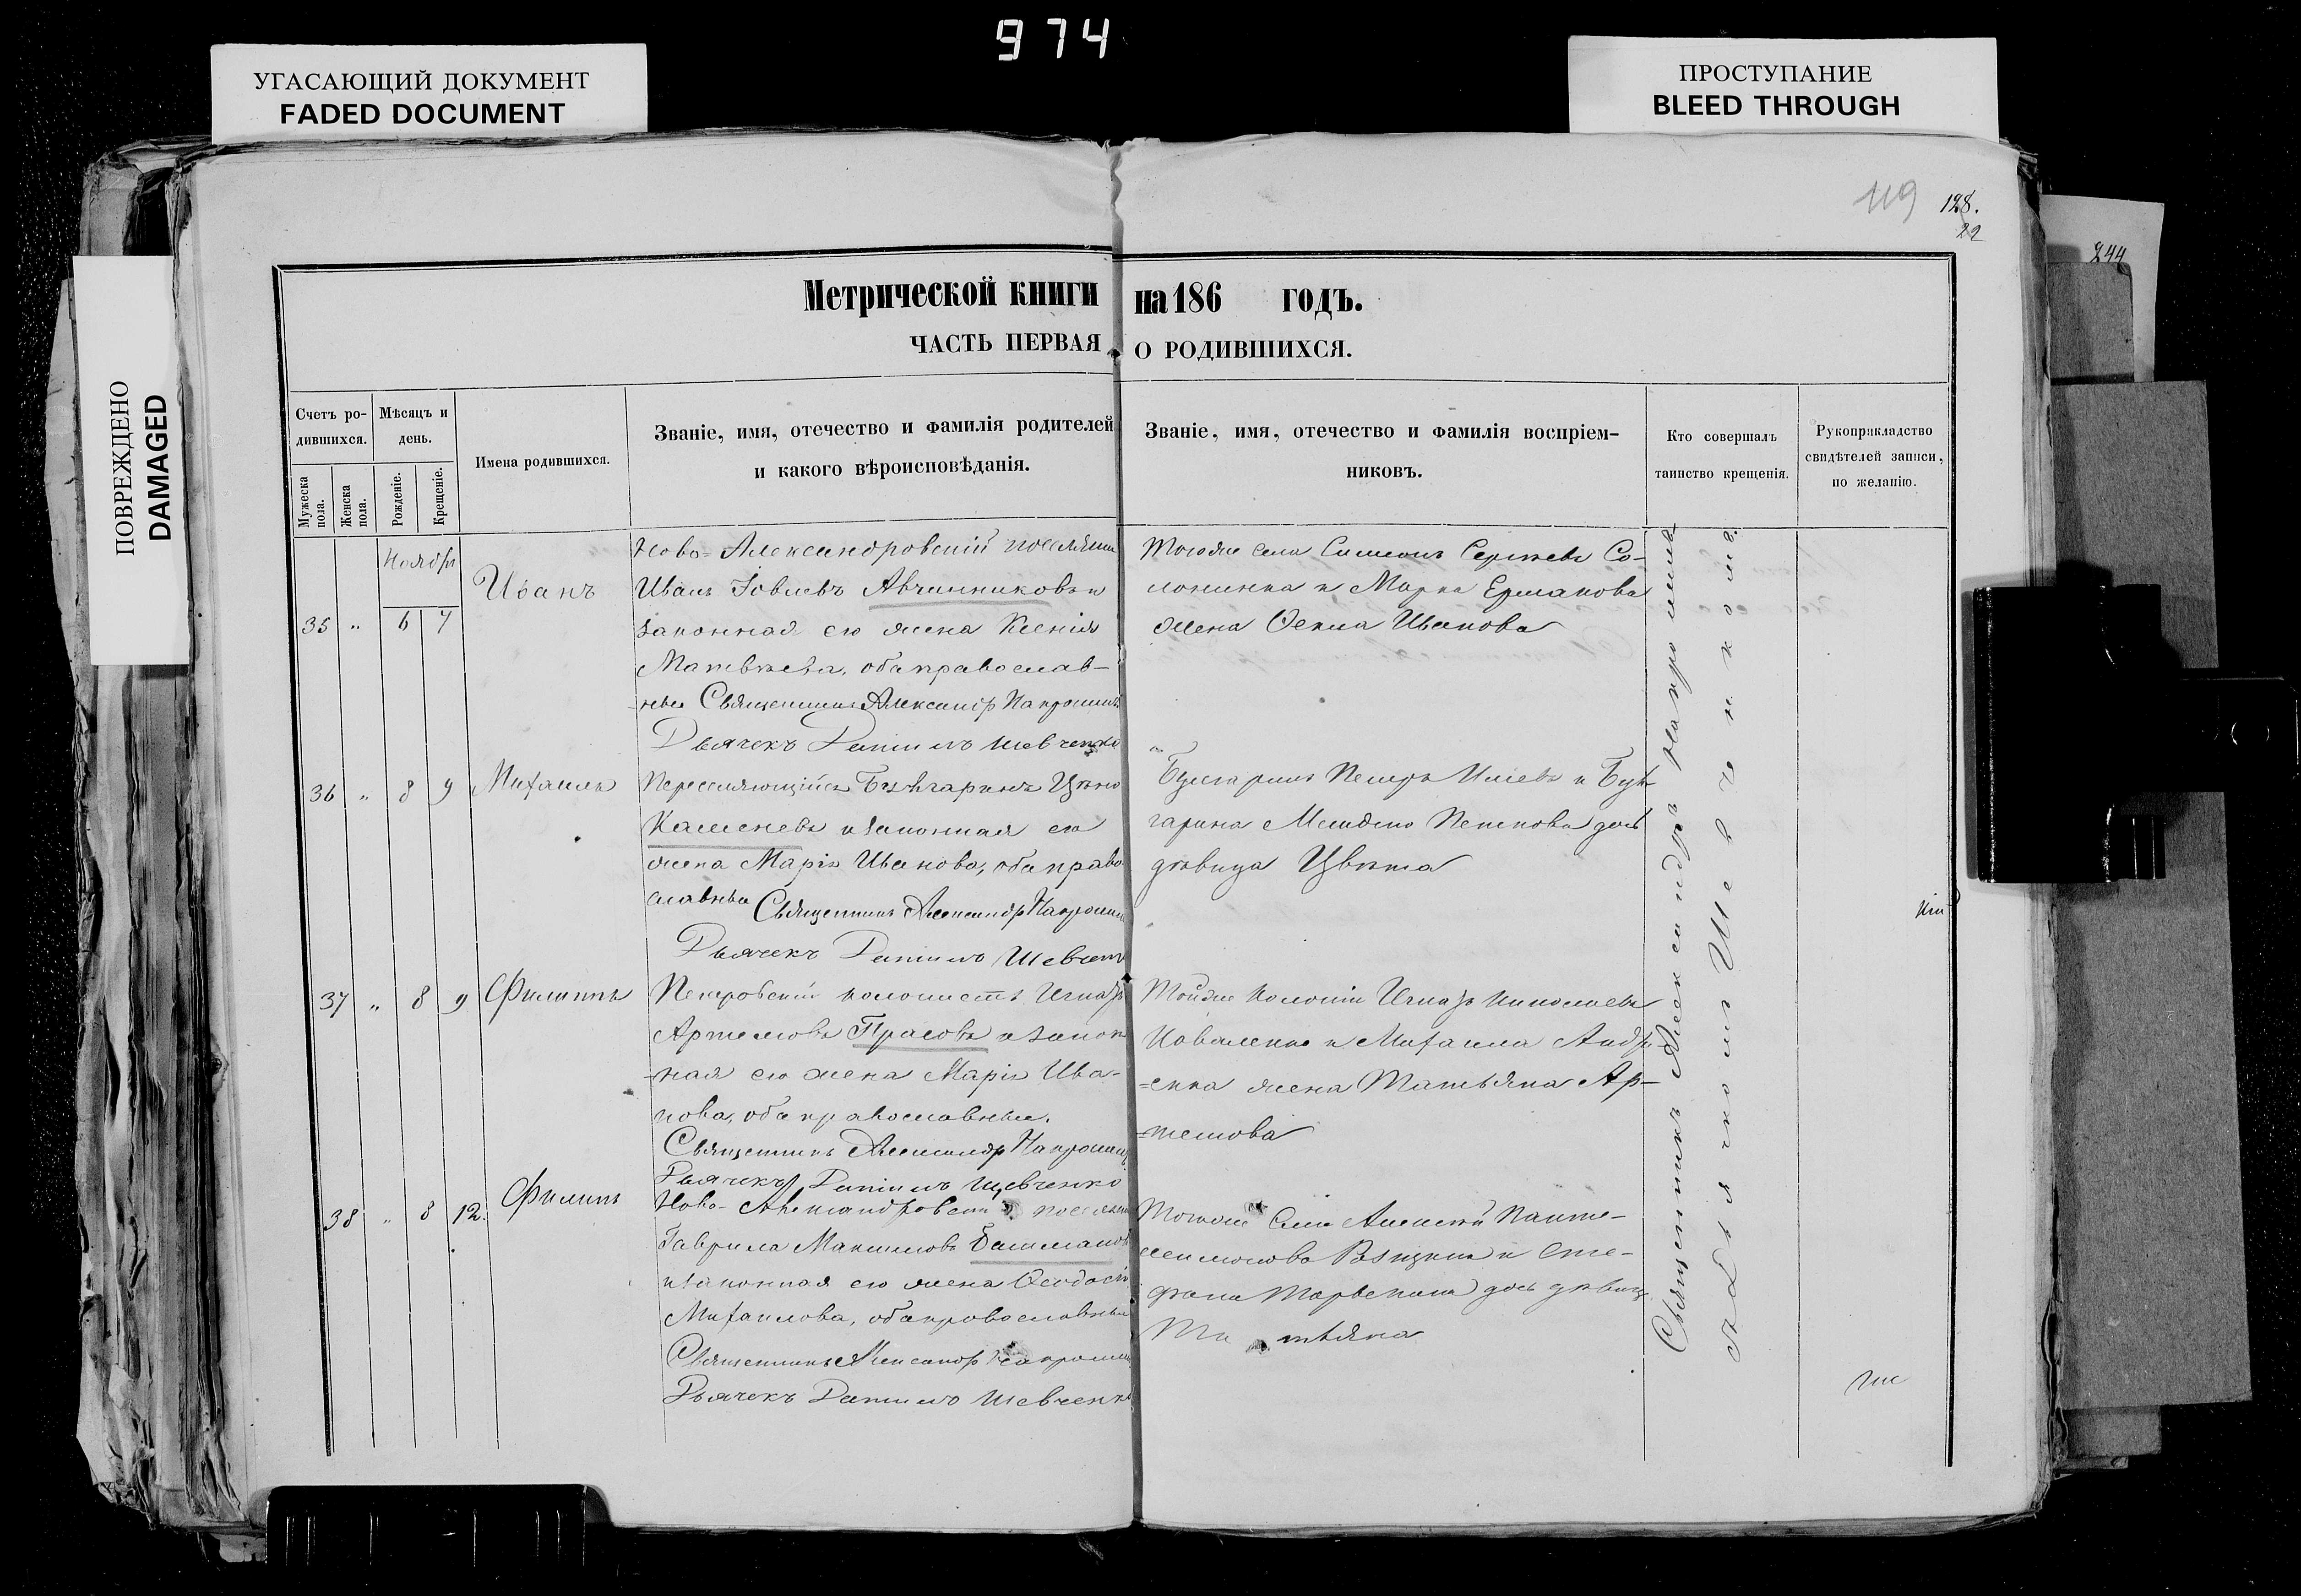 974
УГАСАЮЩИЙ ДОКУМЕНТ
FADED DOCUMENT
ПРОСТУПАНИЕ
BLEED THROUGH
ПОВРЕЖДЕНО
DAMAGED
119 128.
22
244
Метрической книги на 186 годъ.
ЧАСТЬ ПЕРВАЯ О РОДИВШИХСЯ.
Счетъ ро-
дившихся.
Мужеска пола.
Женска пола.
Мѣсяцъ и
день.
Рожденіе.
Крещеніе.
Имена родившихся.
Званіе, имя, отечество и фамилія родителей
и какого вѣроисповѣданія.
Званіе, имя, отечество и фамилія воспріем-
никовъ.
Кто совершалъ
таинство крещенія.
Рукоприкладство
свидѣтелей записи,
по желанію.
Ноябрь
35 " 6 7
Иванъ
Ново-Александровскій поселянин
Иванъ Іовлевъ Авчинниковъ и
законная его жена Ксенія
Матвѣева, оба православ-
ные Священникъ Александр
Дьячекъ Данiилъ Шевченко
Тогоже села Симеонъ Сергѣевъ Со-
лонинка и Марка Ермакова
жена Ѳекла Иванова
36 " 8 9
Михаилъ
Переселяющійся Булгаринъ Цѣно
Каменевъ и законная его
жена Марія Иванова, оба право
славные Священникъ Александр
Дьячекъ Данiилъ Шевченко
Булгаринъ Петръ Иліевъ и Бул-
гарина Пенкова дочь
дѣвица Цвѣта
37 " 8 9
Филиппъ
Петровскій колонистъ Игнатъ
Артемовъ Прасовъ и закон
-ная его жена Марія Ива-
нова, оба православные.
Священникъ Александр
Дьячекъ Данiилъ Шевченко
Тойже Колоніи Игнатъ Николаевъ
Коваленко и Михаила Андр
-енка жена Татьяна Ар-
-темова
38 " 8 12.
Филиппъ
Ново-Александровскій поселянин
Гаврила Максимовъ Башмаков
и законная его жена Ѳеодосія
Михаилова, оба православные
Священникъ Александр
Дьячекъ Данiилъ Шевченко
Тогоже Села Алексѣй Панте-
леимонова и Сте-
фана дочь дѣвица
Татьяна
Священникъ Александръ
съ Дьячкомъ Шевченкомъ.